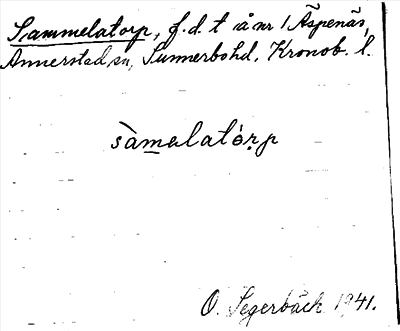 Sammelatorp, f.d. t å nr 1 Äspenäs,
Annerstad sn, Sunnerbo hd, Kronob. l.
sàmelatórp
O. Segerbäck 1941.